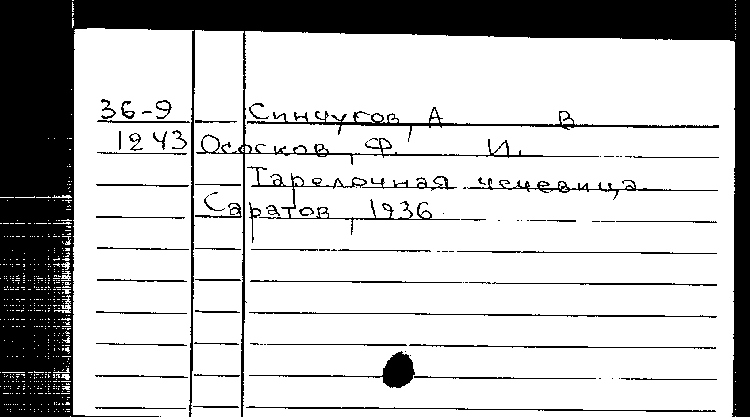 36-9 Синчуков, А В
1243 Ососков, Ф. И.
Тарелочная чечевица.
Саратов, 1936